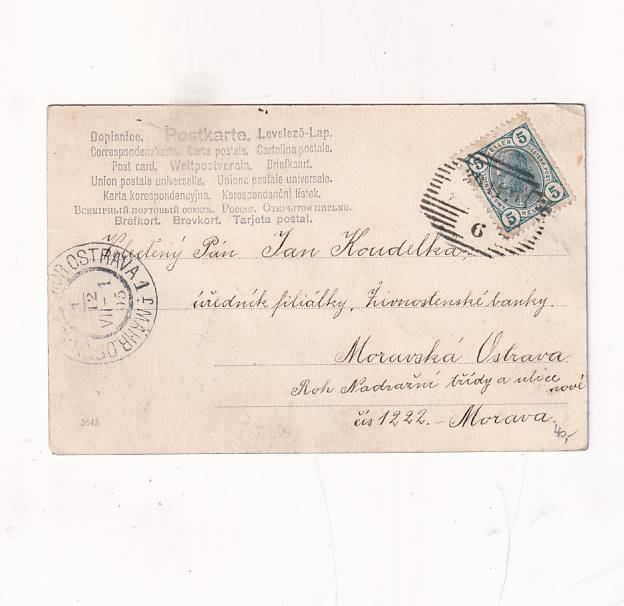 Dopisnice. Postkarte. Levelező-Lap.
Correspondenzkarte. Carta postale. Cartolina postale.
Post card. Weltpostverein. Briefkaart.
Union postale universelle. Unione postale universale.
Karta korespondencyjna. Korespondenční lístek.
Всемірный почтовый союзъ. Россія. Открытое письмо.
Brefkort. Brevkort. Tarjeta postal.
5 5 5 5
6
Pán Jan Koudelka,
úředník filiálky, Živnostenské banky.
Moravská Ostrava
Roh Nadražní třídy a ulice nové
čís 1222. - Morava.
OSTRAVA 1
MÄHR. OS
1
12
VII-1
05
2643
40,-